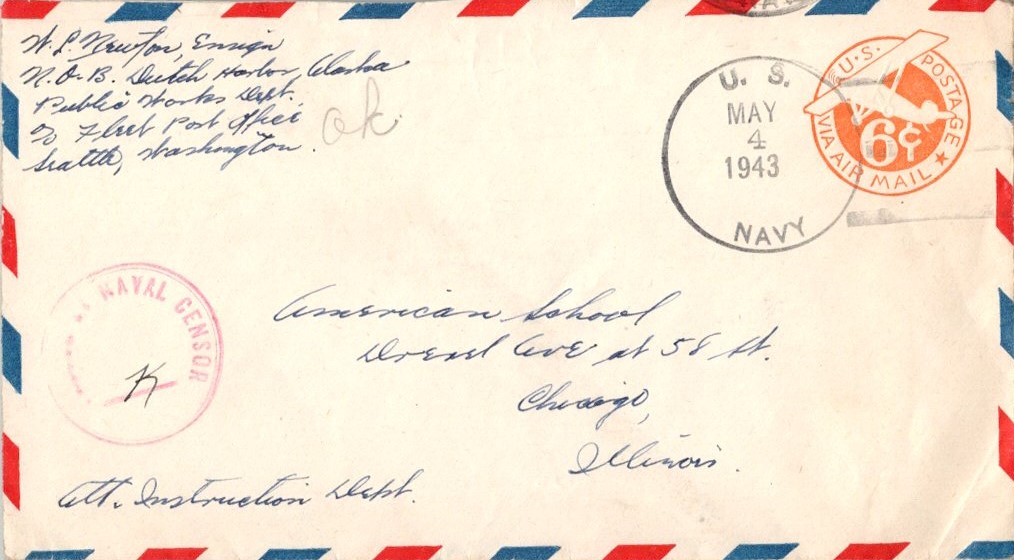 W. L. Newton, Ensign
N.O.B. Dutch Harbor, Alaska
Public Works Dept.
c/o Fleet Post Office
Seattle, Washington.
ok
U. S.
MAY
4
1943
NAVY
U.S. POSTAGE
6¢
VIA AIR MAIL
NAVAL CENSOR
K
American School
Drexel Ave at 58 St.
Chicago,
Illinois.
Att. Instruction Dept.